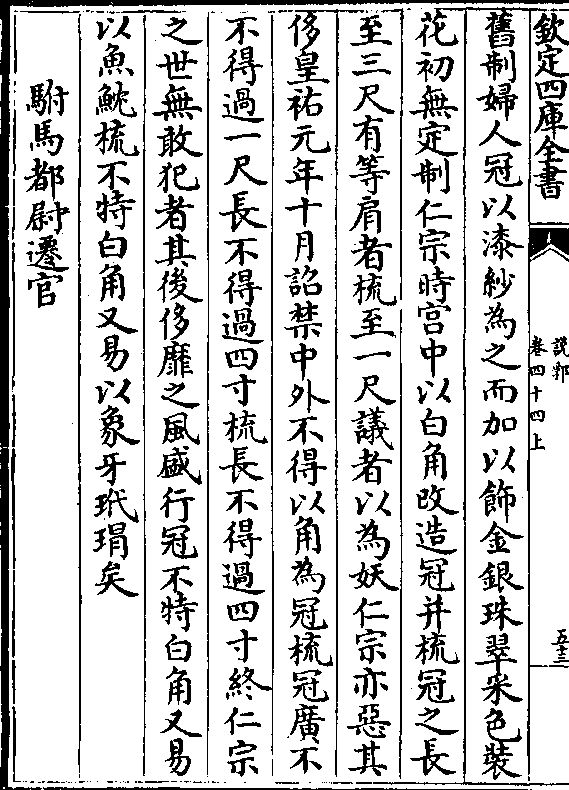 欽定四庫全書
說郛
卷四十四上
五十三
舊制婦人冠以漆紗為之而加以飾金銀珠翠采色裝
花初無定制仁宗時宫中以白角改造冠并梳冠之長
至三尺有等肩者梳至一尺議者以為妖仁宗亦惡其
侈皇祐元年十月詔禁中外不得以角為冠梳冠廣不
不得過一尺長不得過四寸梳長不得過四寸終仁宗
之世無敢犯者其後侈靡之風盛行冠不特白角又易
以魚魫梳不特白角又易以象牙玳瑁矣
駙馬都尉遷官